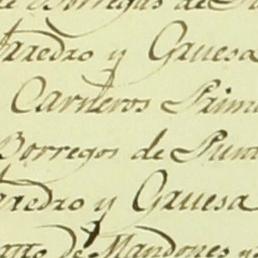 de Borregos de Pun
aredro y Gruesa
Carneros Prim
Borregos de Pun
aredro y Gruesa
de Mandones y